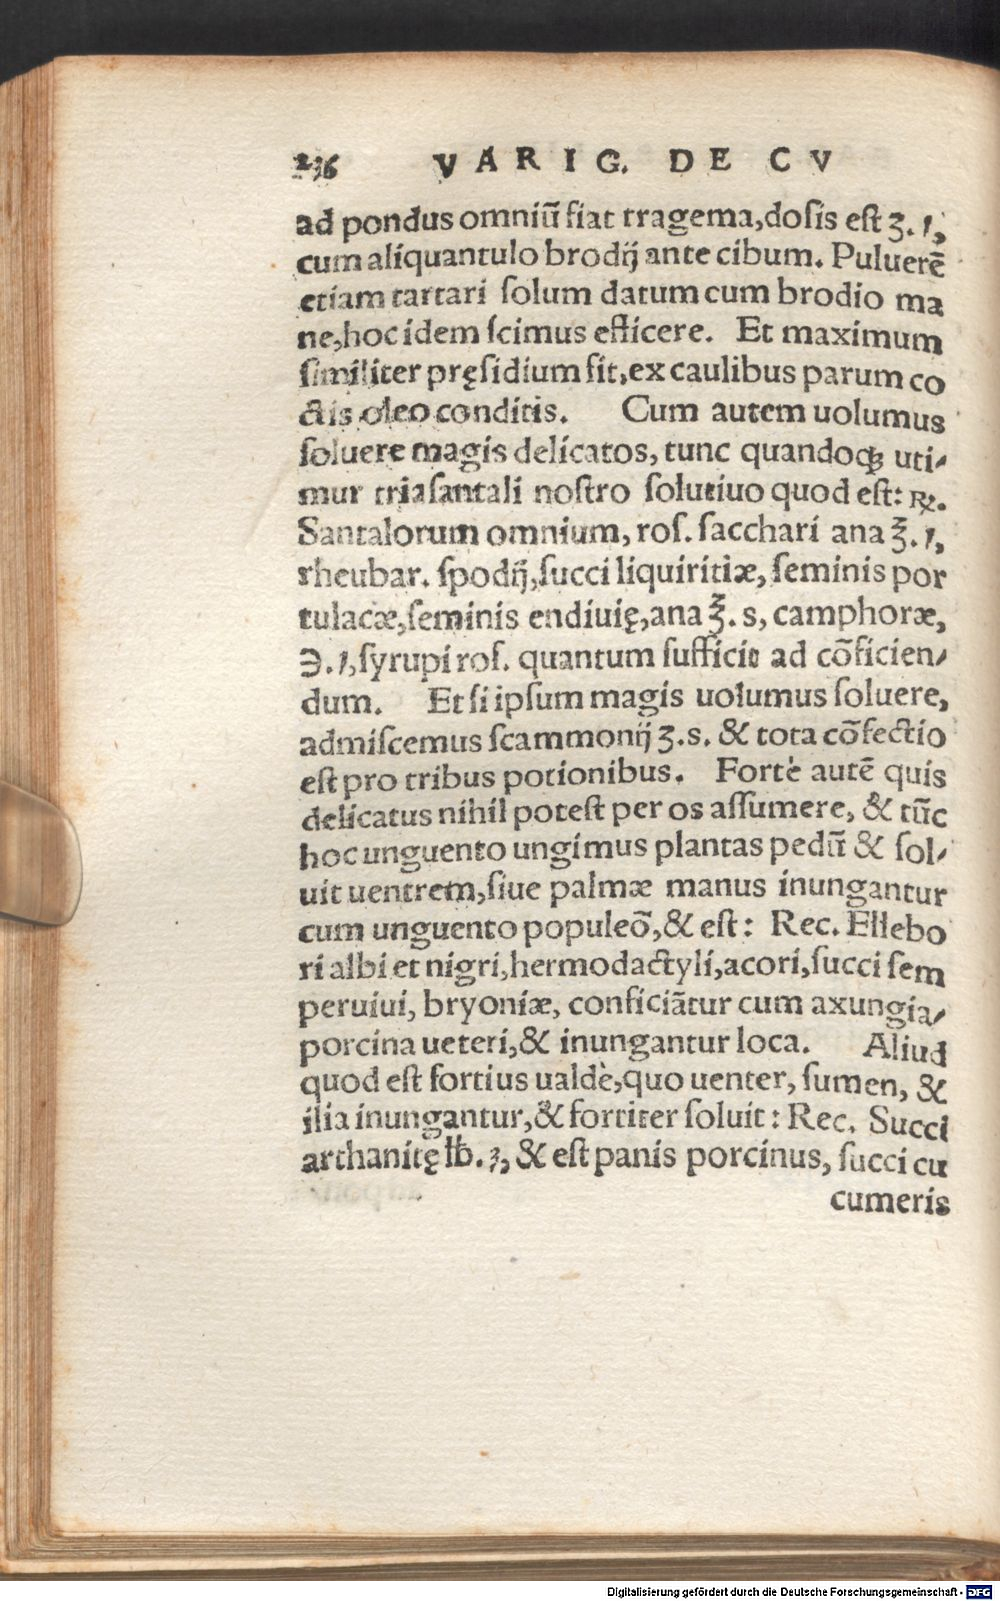 236 VARIG. DE CV
ad pondus omniũ fiat tragema, dosis est ʒ. 1,
cum aliquantulo brodij ante cibum. Puluerẽ
etiam tartari solum datum cum brodio ma
ne, hoc idem scimus efficere. Et maximum
similiter pręsidium fit, ex caulibus parum co
ctis oleo conditis. Cum autem uolumus
soluere magis delicatos, tunc quandoqꝫ uti-
mur triasantali nostro solutiuo quod est: ℞.
Santalorum omnium, ros. sacchari ana ℥. 1,
rheubar. spodij, succi liquiritiæ, seminis por
tulacæ, seminis endiuię, ana ℥. s, camphoræ,
℈. 1, syrupi ros. quantum sufficit ad cõficien-
dum. Et si ipsum magis uolumus soluere,
admiscemus scammonij ʒ. s. & tota cõfectio
est pro tribus potionibus. Fortè autẽ quis
delicatus nihil potest per os assumere, & tũc
hoc unguento ungimus plantas pedũ & sol-
uit uentrem, siue palmæ manus inungantur
cum unguento populeõ, & est: Rec. Ellebo
ri albi et nigri, hermodactyli, acori, succi sem
peruiui, bryoniæ, conficiãtur cum axungia-
porcina ueteri, & inungantur loca. Aliud
quod est fortius ualdè, quo uenter, sumen, &
ilia inungantur, & fortiter soluit: Rec. Succi
arthanitę lb. 3, & est panis porcinus, succi cu
cumeris
Digitalisierung gefördert durch die Deutsche Forschungsgemeinschaft - DFG